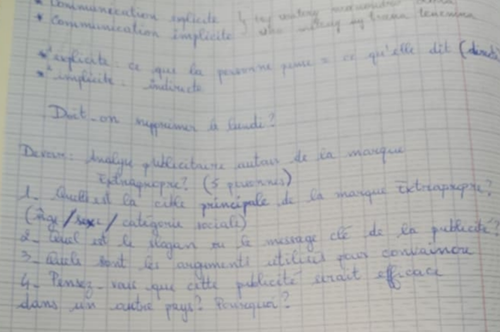 * Communication explicite
* Communication implicite
* explicite : ce que la personne pense = ce qu'elle dit (
* implicite - indirecte
Doit-on supprimer le lundi ?
Devoir : Analyse publicitaire autour de la marque
Extrapropre ? (5 personnes)
1_ Quelle est la cible principale de la marque Extrapropre ?
(âge / sexe / catégorie sociale)
2_ Quel est le slogan ou le message clé de la publicité ?
3_ Quels sont les arguments utilisés pour convaincre
4_ Pensez-vous que cette publicité serait efficace
dans un autre pays ? Pourquoi ?